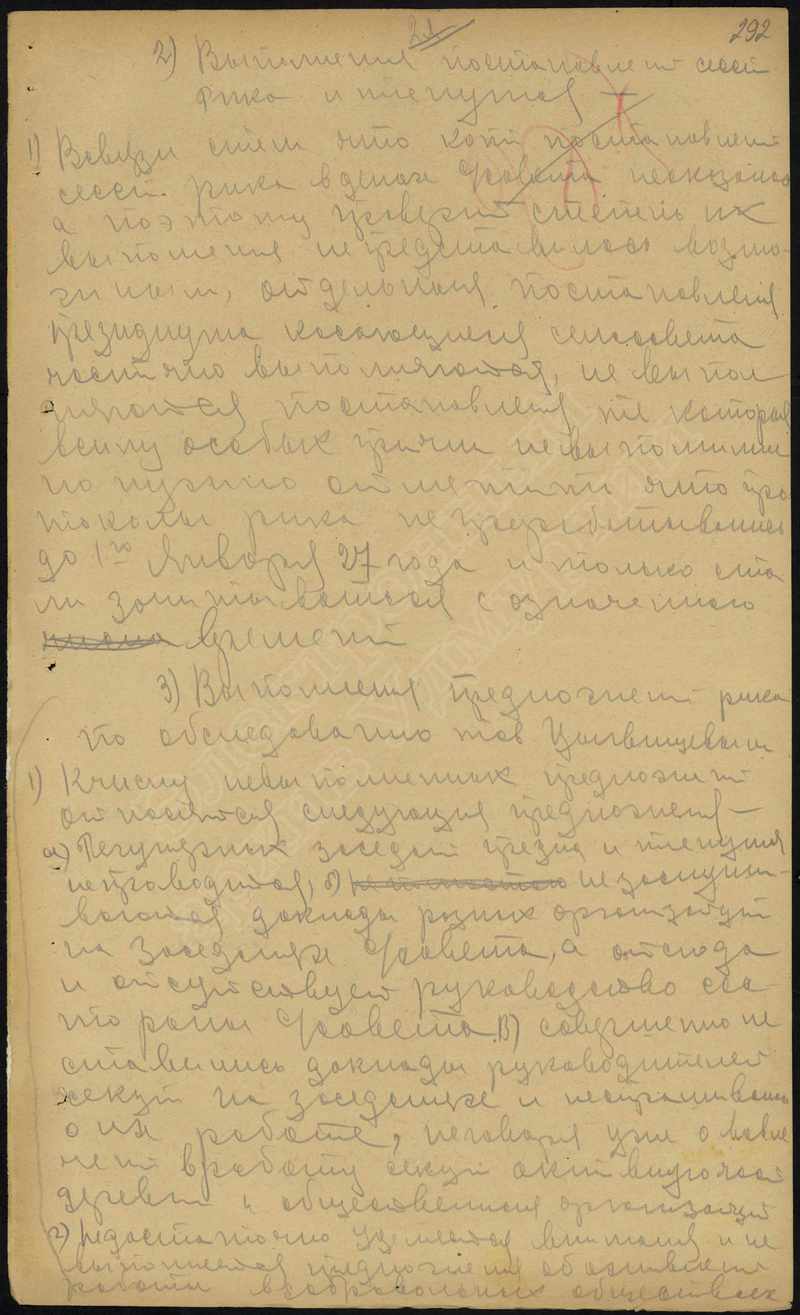 21
292
2) Выполнения постановлений сесси
Рика и пленумов —
1) Всвязи стем что копи постановлений
сесси рика вделах Совета неоказалось
а поэтому проверит степень их
выполнения не представилось возмо-
жным, отдельныя постановления
президиума косающиеся сельсовета
частично выполняются, не выпол
няются постановления те которыя
всилу особых причин невыполнимы
но нужно отметить что про
токолы рика непрорабатывались
до 1го Января 27 года и только ста
ли зачитываться с означенного
времени
3) Выполнения предложений рика
по обследованию тов
1) Кчислу невыполненных предложений
относятся следующия предложения —
а) Регулярных заседаний презид и пленумов
непроводится, б) незаслуши-
ваются доклады разных организаций
на заседаниях Совета, а отсюда
и отсутствует руководство
работы Совета. В) совершенно не
ставились доклады руководителей
секций на заседаниях и неспрашивалось
о их работе, неговоря уже о вовле
чении вработу секций актив
деревни и общественныя организаций
2) Недостаточно уделяется внимания и не
выполняется предложения об оживлении
работы вдобровольных обществах